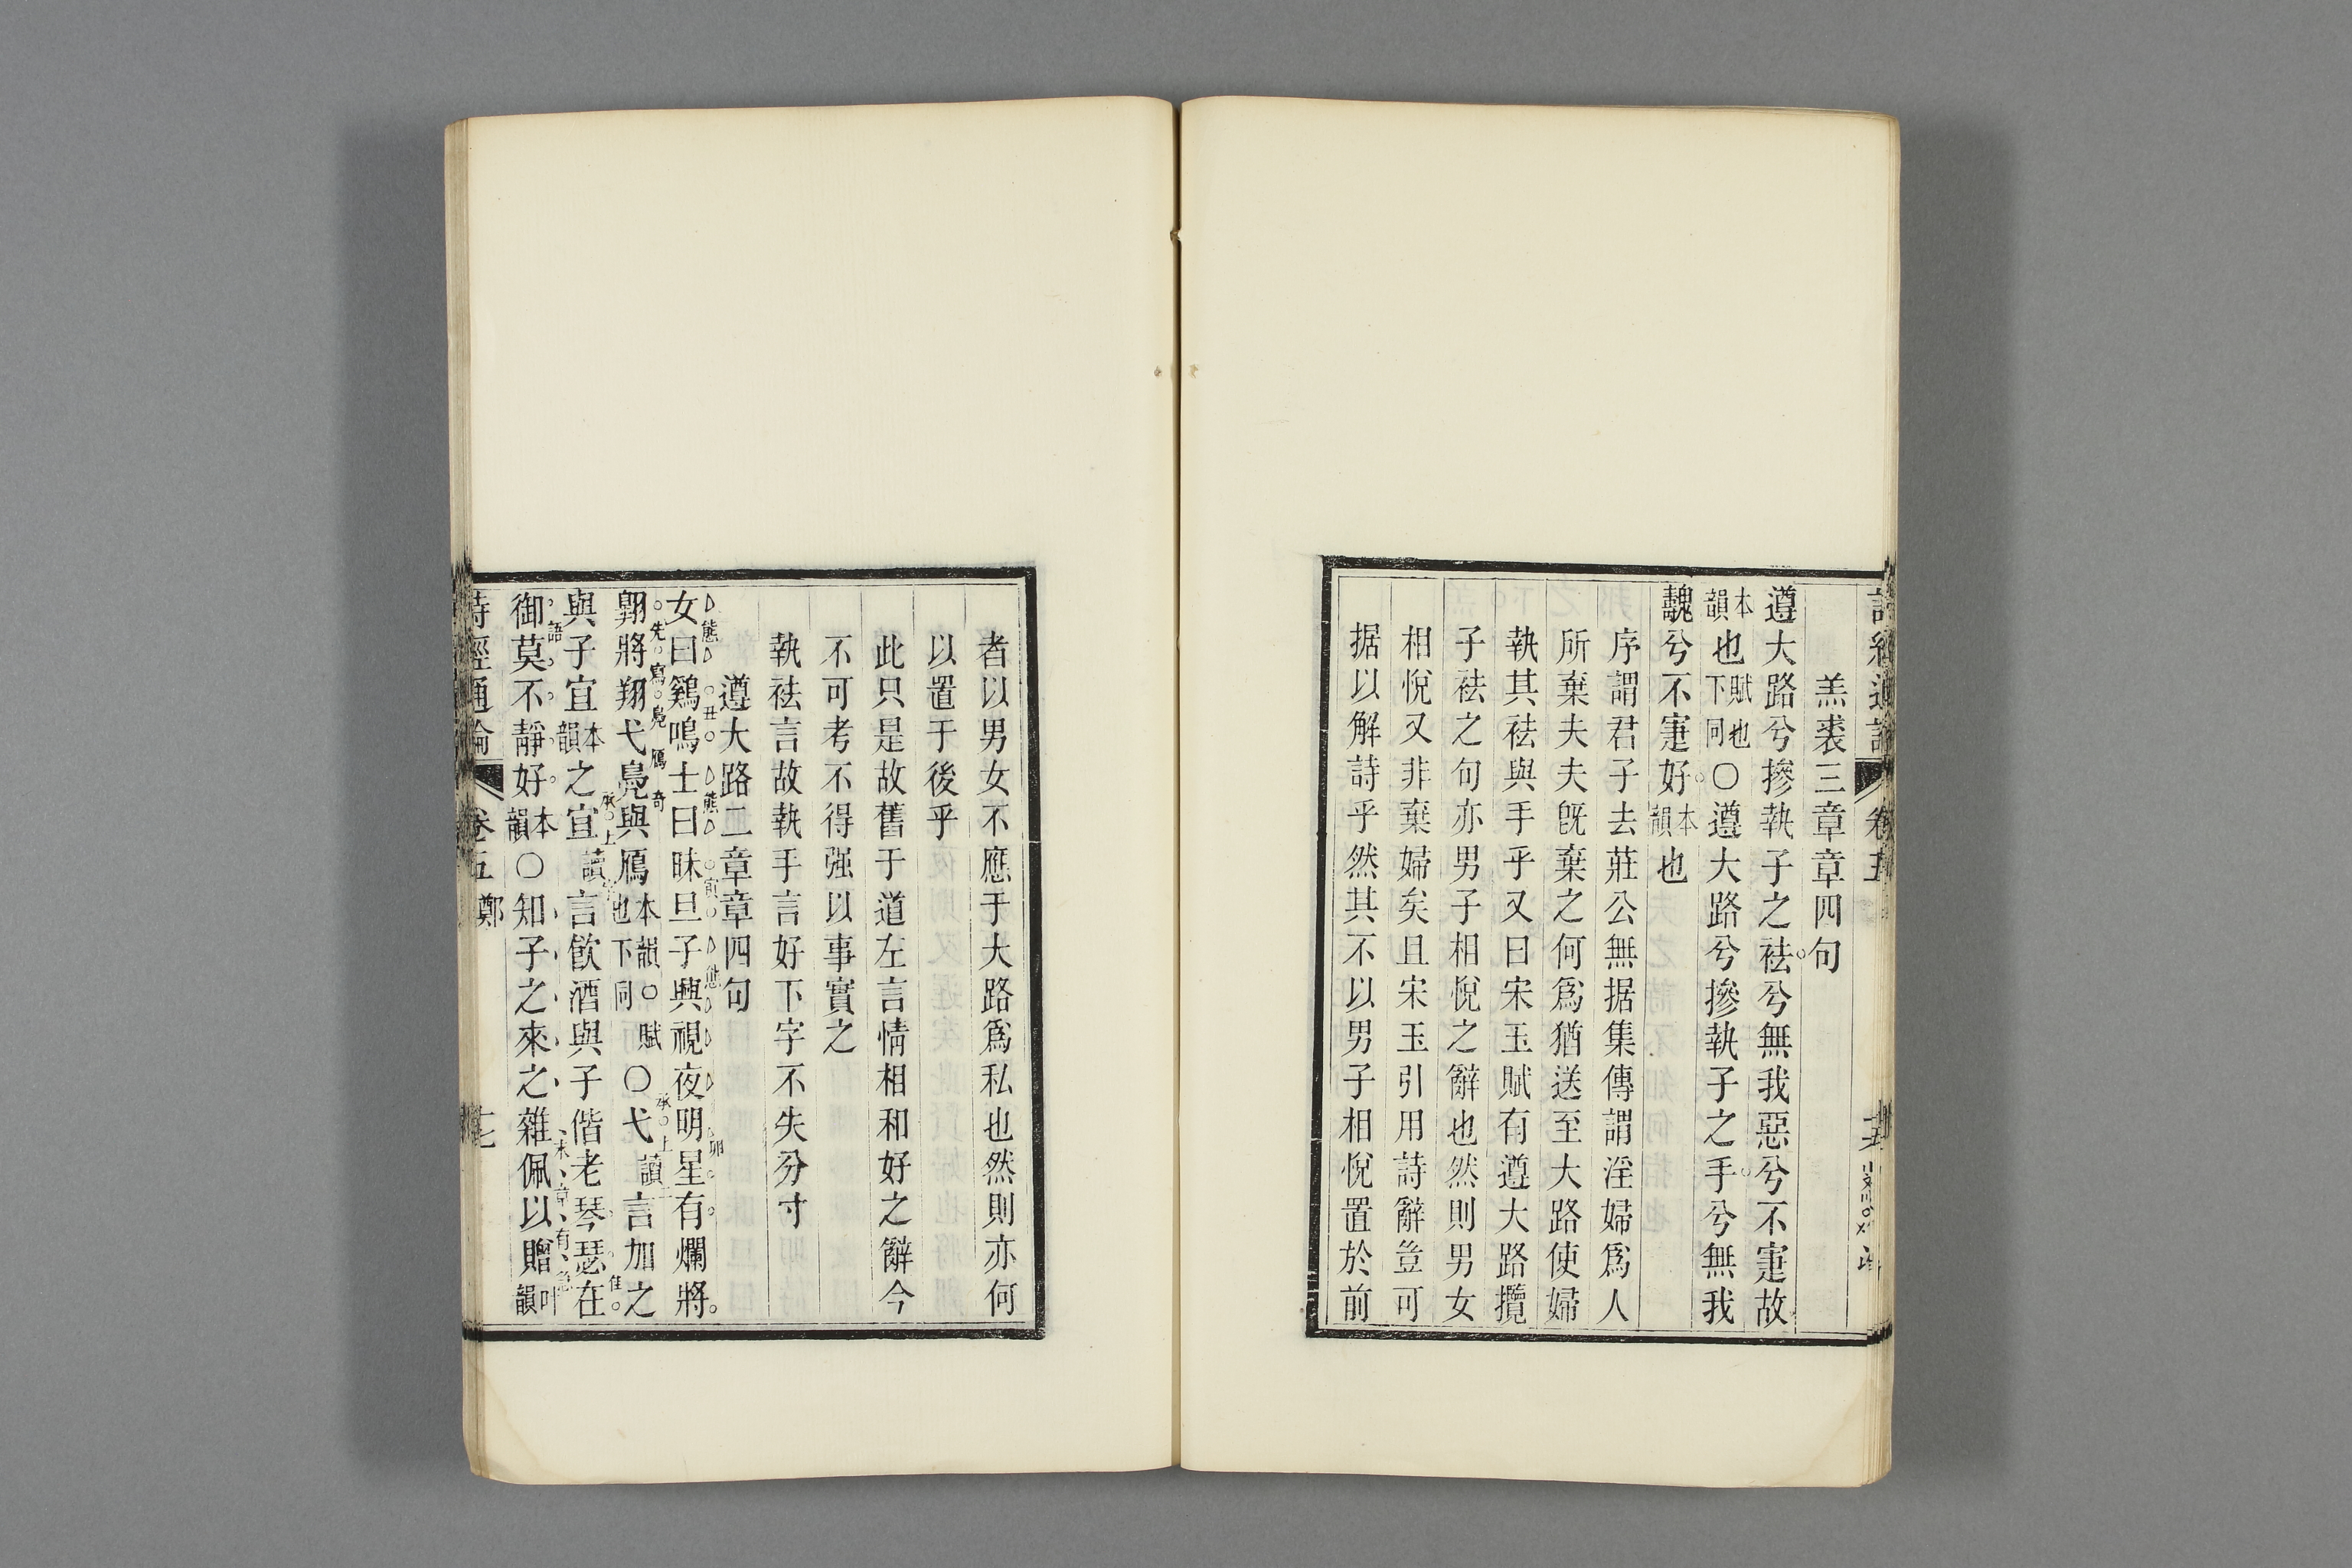 羔裘三章章四句
遵大路兮摻執子之袪兮無我惡兮不寁故
本韻也賦也下同○遵大路兮摻執子之手兮無我
魗兮不寁好本韻也
序謂君子去莊公無据集傳謂淫婦爲人
所棄夫夫旣棄之何爲猶送至大路使婦
執其袪與手乎又曰宋玉賦有遵大路攬
子袪之句亦男子相悅之辭也然則男女
相悅又非棄婦矣且宋玉引用詩辭豈可
据以解詩乎然其不以男子相悅置於前
者以男女不應于大路爲私也然則亦何
以置于後乎
此只是故舊于道左言情相和好之辭今
不可考不得强以事實之
執袪言故執手言好下字不失分寸
遵大路二章章四句
女曰雞鳴士曰昧旦子興視夜明星有爛將
翱將翔弋鳧與鴈本韻○賦也下同○弋言加之
與子宜本韻之宜言飲酒與子偕老琴瑟在
御莫不靜好本韻○知子之來之雜佩以贈叶韻
詩經通論 卷五 鄭